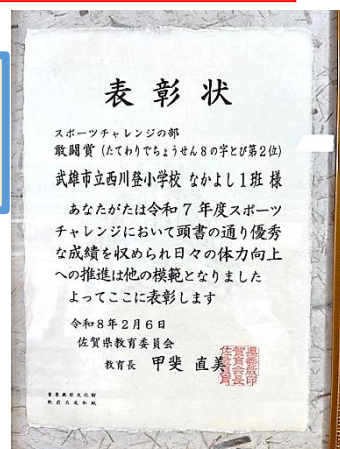 表彰状
スポーツチャレンジの部
敢闘賞（たてわりでちょうせん８の字とび第２位）
武雄市立西川登小学校 なかよし１班 様
あなたがたは令和７年度スポーツ
チャレンジにおいて頭書の通り優秀
な成績を収められ日々の体力向上
への推進は他の模範となりました
よってここに表彰します
令和８年２月６日
佐賀県教育委員会
教育長 甲斐 直美
重要無形文化財